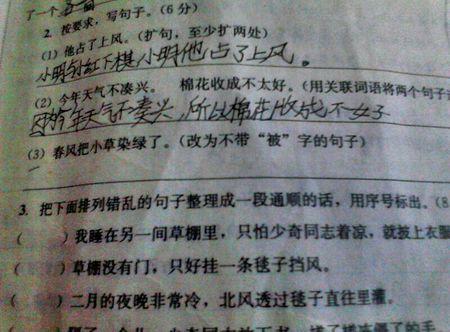 了一个
2. 按要求，写句子。(6分)
(1) 他占了上风。(扩句，至少扩两处)
小明和红下棋小明他占了上风。
(2) 今年天气不凑兴。 棉花收成不太好。(用关联词语将两个句子
因为今年天气不凑兴，所以棉花收成不好
(3) 春风把小草染绿了。(改为不带“被”字的句子)
3. 把下面排列错乱的句子整理成一段通顺的话，用序号标出。(8
( )我睡在另一间草棚里，只怕少奇同志着凉，就披上衣服
( )草棚没有门，只好挂一条毯子挡风。
( )二月的夜晚非常冷，北风透过毯子直往里灌。